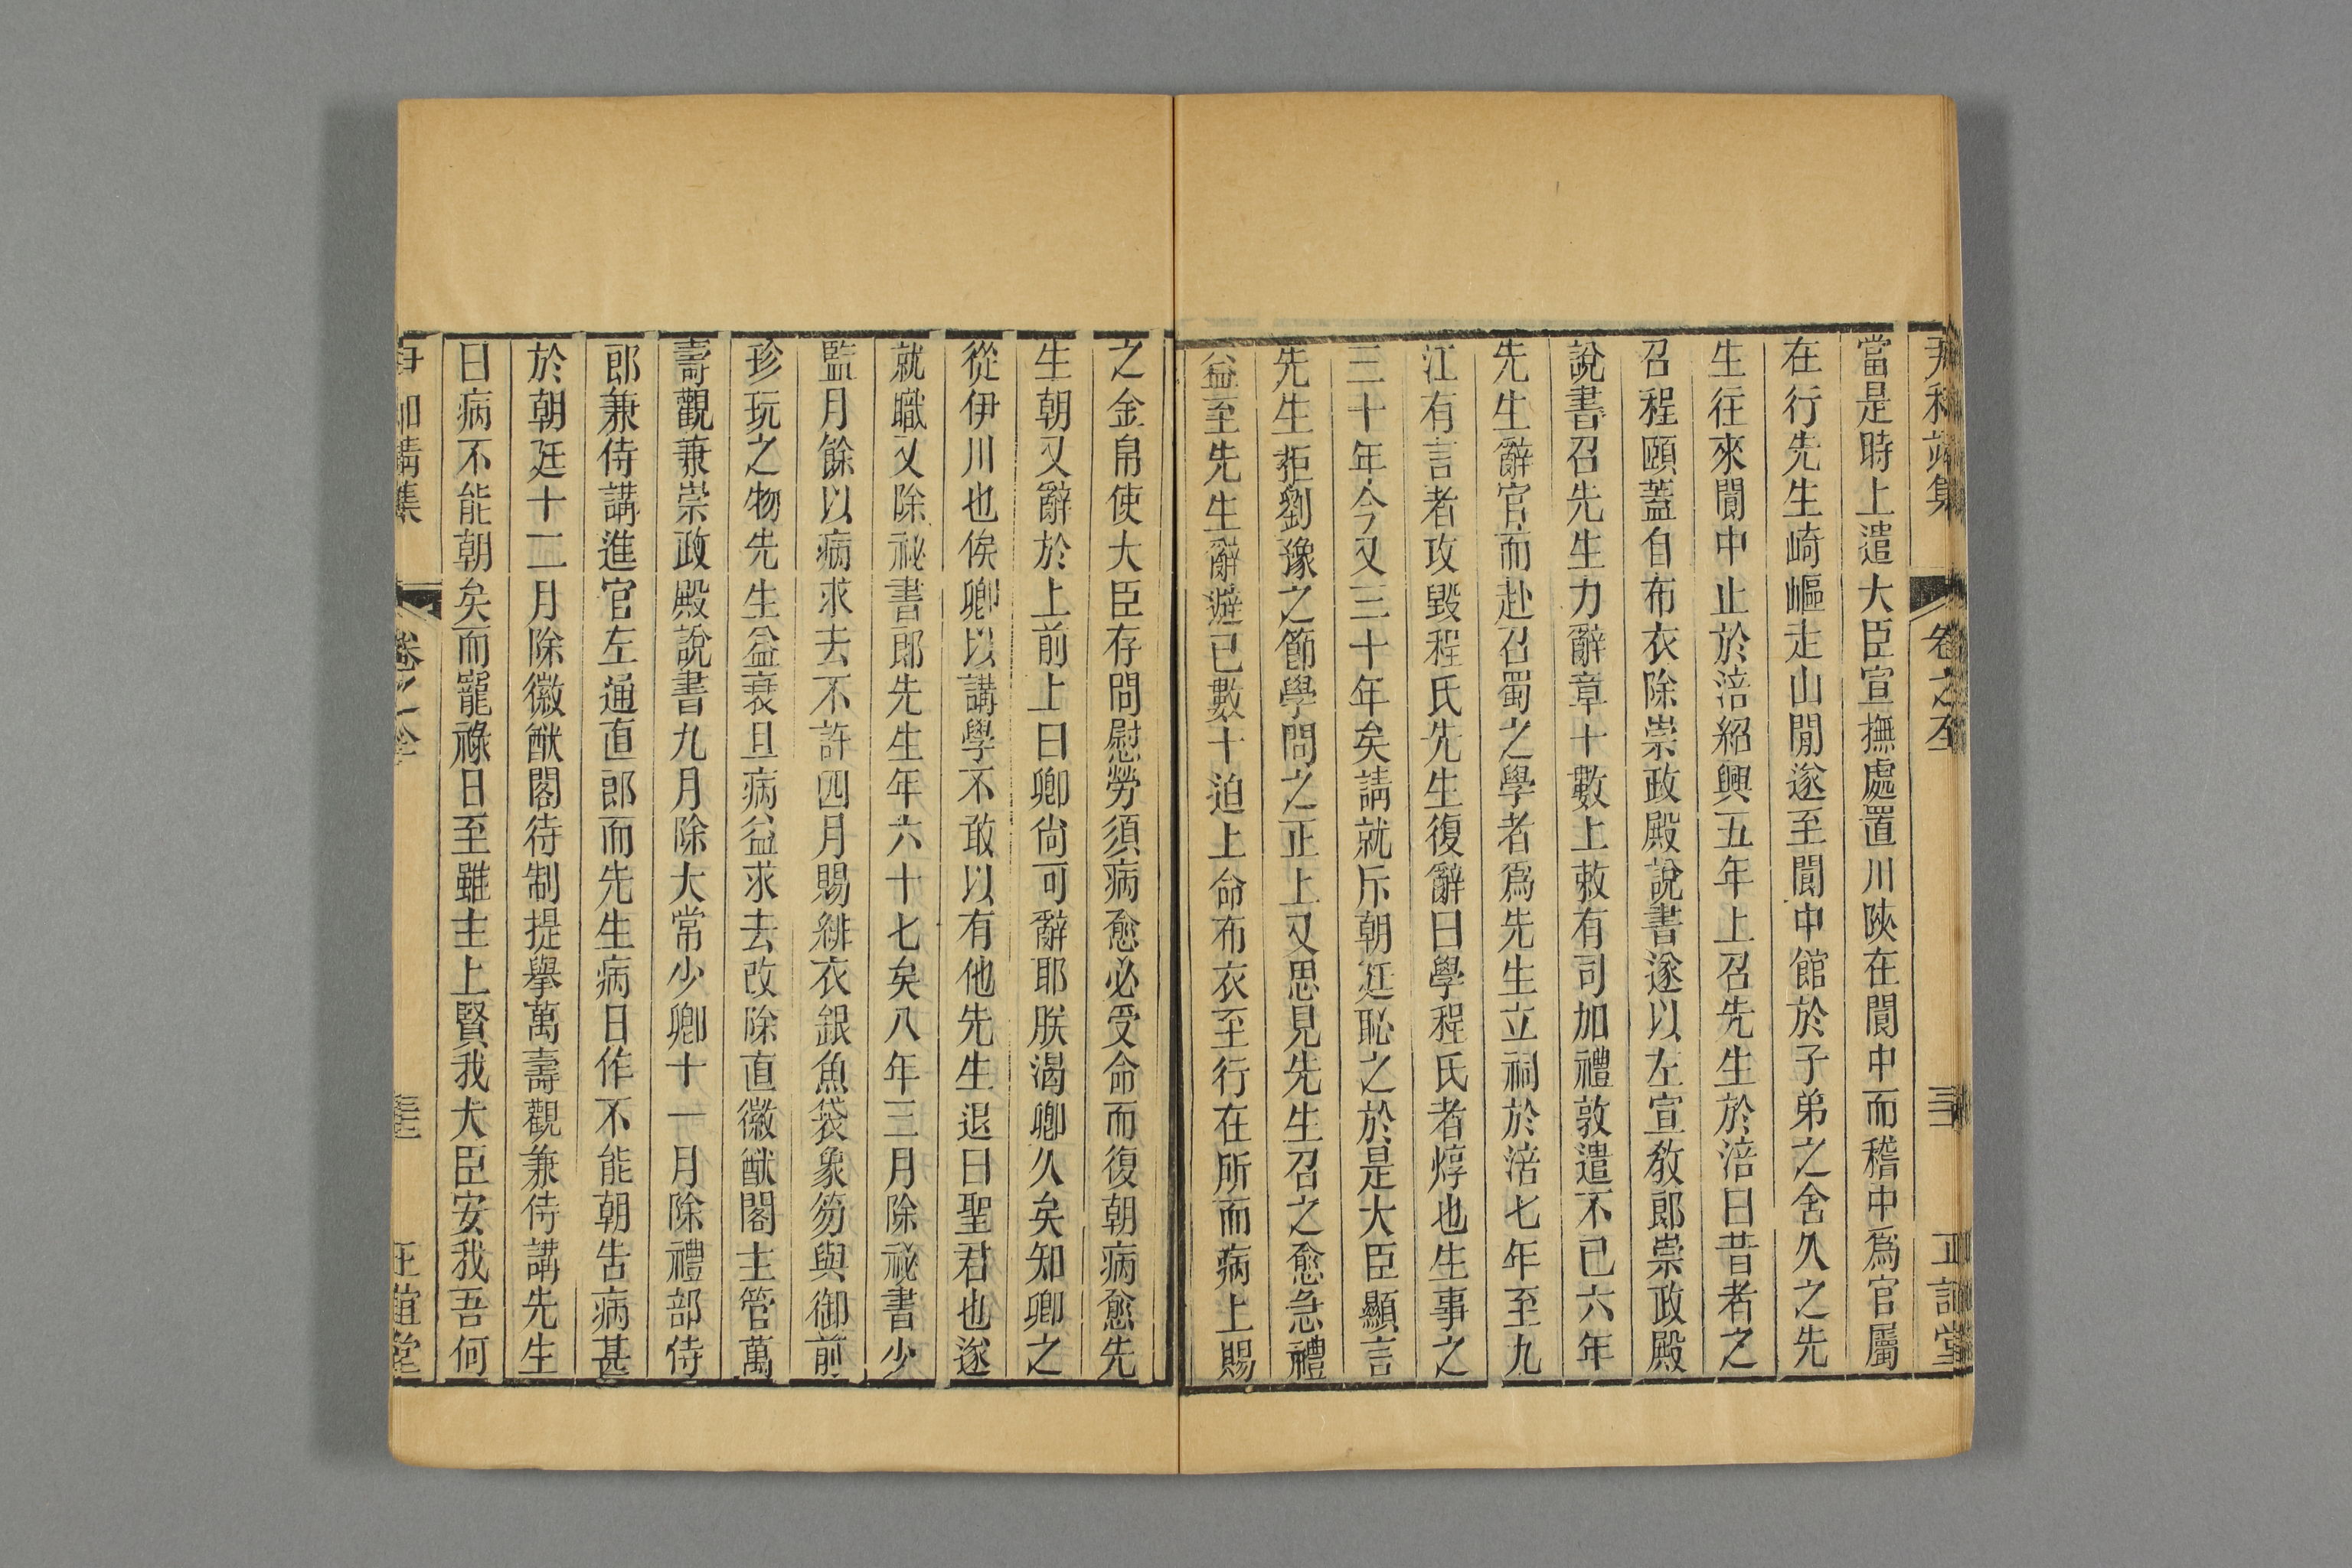 當是時上遣大臣宣撫處置川陜在閬中而稽中爲官屬
在行先生崎嶇走山閒遂至閬中館於子弟之舍久之先
生往來閬中止於涪紹興五年上召先生於涪曰昔者之
召程頤蓋自布衣除崇政殿說書遂以左宣敎郎崇政殿
說書召先生力辭章十數上敕有司加禮敦遣不已六年
先生辭官而赴召蜀之學者爲先生立祠於涪七年至九
江有言者攻毀程氏先生復辭曰學程氏者焞也生事之
三十年今又三十年矣請就斥朝廷恥之於是大臣顯言
先生拒劉豫之節學問之正上又思見先生召之愈急禮
益至先生辭避已數十迫上命布衣至行在所而病上賜
之金帛使大臣存問慰勞須病愈必受命而復朝病愈先
生朝又辭於上前上曰卿尙可辭耶朕渴卿久矣知卿之
從伊川也俟卿以講學不敢以有他先生退曰聖君也遂
就職又除祕書郎先生年六十七矣八年三月除祕書少
監月餘以病求去不許四月賜緋衣銀魚袋象笏與御前
珍玩之物先生益衰且病益求去改除直徽猷閣主管萬
壽觀兼崇政殿說書九月除大常少卿十一月除禮部侍
郎兼侍講進官左通直郎而先生病日作不能朝告病甚
於朝廷十二月除徽猷閣待制提舉萬壽觀兼侍講先生
曰病不能朝矣而寵祿日至雖主上賢我大臣安我吾何